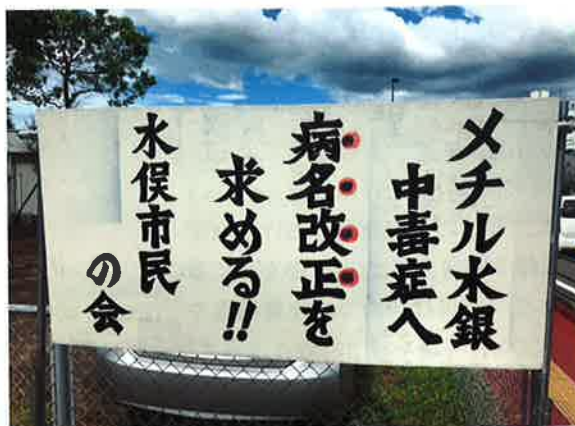 メチル水銀
中毒症へ
病名改正を
求める!!
水俣市民
の会